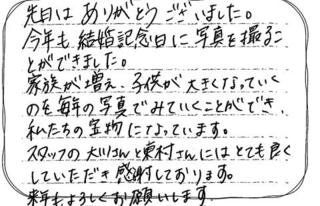 先日は ありがとうございました。
今年も 結婚記念日に写真を撮るこ
とができました。
家族が増え、子供が大きくなっていく
のを毎年の写真でみていくことができ、
私たちの宝物になっています。
スタッフの大川さんと東村さんにはとても良く
していただき感謝しております。
来年もよろしくお願いします